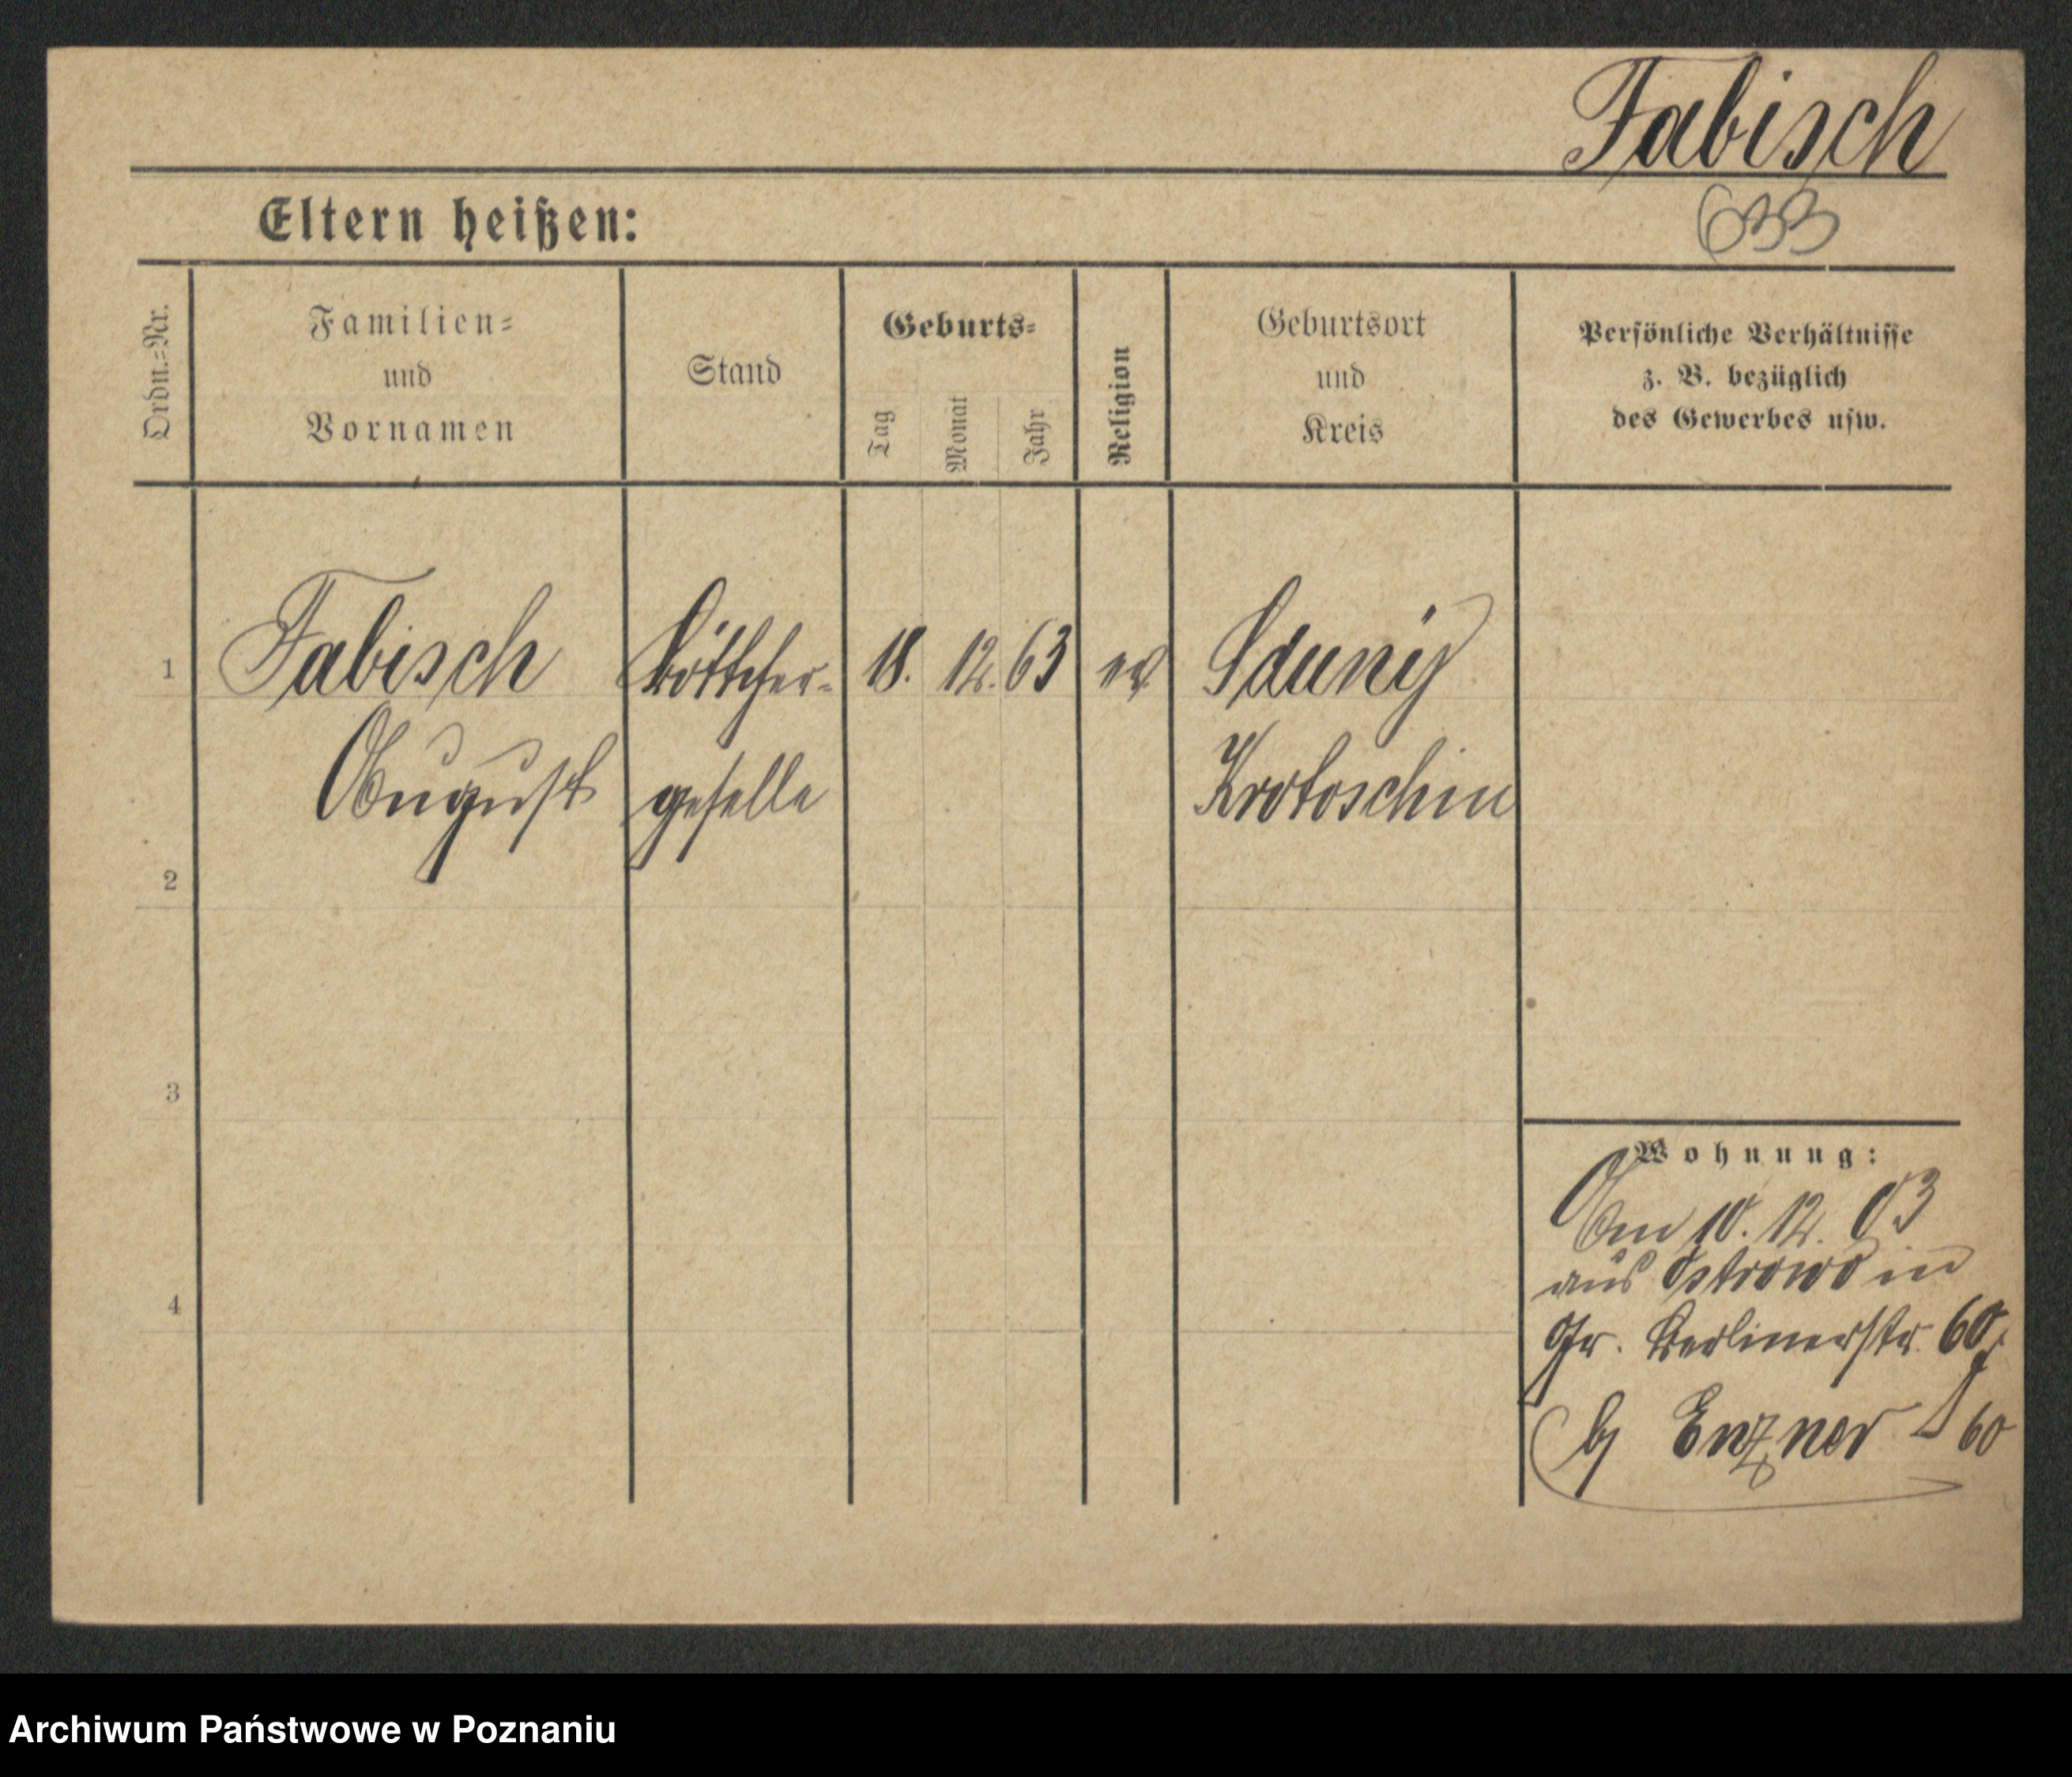 Fabisch
633
Eltern heißen:
Ordn.=Nr.
Familien=
und
Vornamen
Stand
Geburts=
Tag
Monat
Jahr
Religion
Geburtsort
und
Kreis
Persönliche Verhältnisse
z. B. bezüglich
des Gewerbes usw.
1
Fabisch
Böttcher=
18.
12.
63
ev
Sduny
August
geselle
Krotoschin
2
3
4
Wohnung:
Am 10. 12. 03
aus Ostrowo in
Gr. Berlinerstr. 60
bj Enzner
60
Archiwum Państwowe w Poznaniu